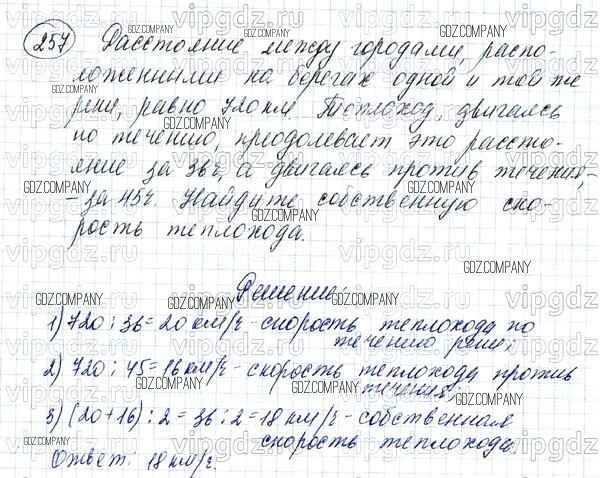 257 Расстояние между городами, распо-
ложенными на берегах одной и той же
реки, равно 720 км. Теплоход, двигаясь
по течению, преодолевает это рассто-
яние за 36 г, а двигаясь против течения,-
- за 45 г. Найдите собственную ско-
рость теплохода.
Решение:
1) 720 : 36 = 20 км/г - скорость теплохода по
течению реки;
2) 720 : 45 = 16 км/г - скорость теплохода против
течения;
3) (20 + 16) : 2 = 36 : 2 = 18 км/г - собственная
скорость теплохода.
Ответ: 18 км/г.
GDZ.COMPANY
vipgdz.ru